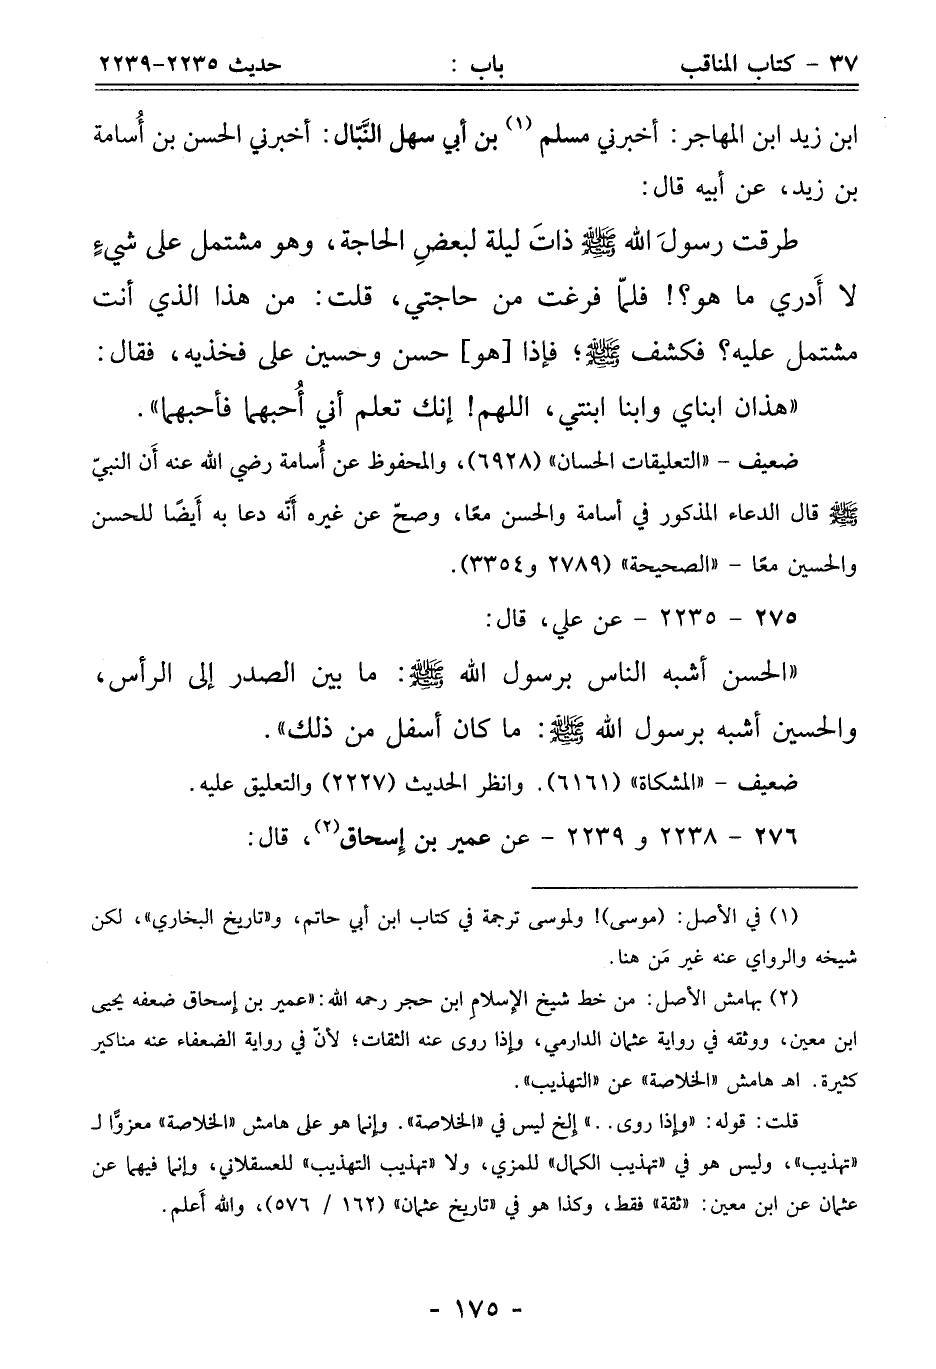 ٣٧ - كتاب المناقب باب : حديث ٢٢٣٥-٢٢٣٩
ابن زيد ابن المهاجر: أخبرني مسلم (١) بن أبي سهل النَّبّال: أخبرني الحسن بن أُسامة
بن زيد، عن أبيه قال:
طرقت رسولَ الله ﷺ ذاتَ ليلة لبعضِ الحاجة، وهو مشتمل على شيءٍ
لا أَدري ما هو؟! فلمّا فرغت من حاجتي، قلت: من هذا الذي أنت
مشتمل عليه؟ فكشف ﷺ؛ فإذا [هو] حسن وحسين على فخذيه، فقال:
«هذان ابناي وابنا ابنتي، اللهم! إنك تعلم أني أُحبهما فأحبهما».
ضعيف - «التعليقات الحسان» (٦٩٢٨)، والمحفوظ عن أُسامة رضي الله عنه أن النبيّ
ﷺ قال الدعاء المذكور في أسامة والحسن معًا، وصحّ عن غيره أَنَّه دعا به أَيضًا للحسن
والحسين معًا - «الصحيحة» (٢٧٨٩ و٣٣٥٤).
٢٧٥ - ٢٢٣٥ - عن علي، قال:
«الحسن أشبه الناس برسول الله ﷺ: ما بين الصدر إلى الرأس،
والحسين أشبه برسول الله ﷺ: ما كان أسفل من ذلك».
ضعيف - «المشكاة» (٦١٦١). وانظر الحديث (٢٢٢٧) والتعليق عليه.
٢٧٦ - ٢٢٣٨ و ٢٢٣٩ - عن عمير بن إسحاق(٢)، قال:
(١) في الأصل: (موسى)! ولموسى ترجمة في كتاب ابن أبي حاتم، و«تاريخ البخاري»، لكن
شيخه والرواي عنه غير مَن هنا.
(٢) بهامش الأصل: من خط شيخ الإسلامِ ابن حجر رحمه الله: «عمير بن إسحاق ضعفه يحيى
ابن معين، ووثقه في رواية عثمان الدارمي، وإذا روى عنه الثقات؛ لأنّ في رواية الضعفاء عنه مناكير
كثيرة. اهـ هامش «الخلاصة» عن «التهذيب».
قلت: قوله: «وإذا روى..» إلخ ليس في «الخلاصة». وإنما هو على هامش «الخلاصة» معزوًّا لـ
«تهذيب»، وليس هو في «تهذيب الكمال» للمزي، ولا «تهذيب التهذيب» للعسقلاني، وإنما فيهما عن
عثمان عن ابن معين: «ثقة» فقط، وكذا هو في «تاريخ عثمان» (١٦٢ / ٥٧٦)، والله أَعلم.
- ١٧٥ -